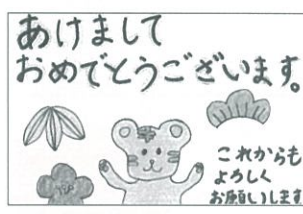 あけまして
おめでとうございます。
これからも
よろしく
お願いします